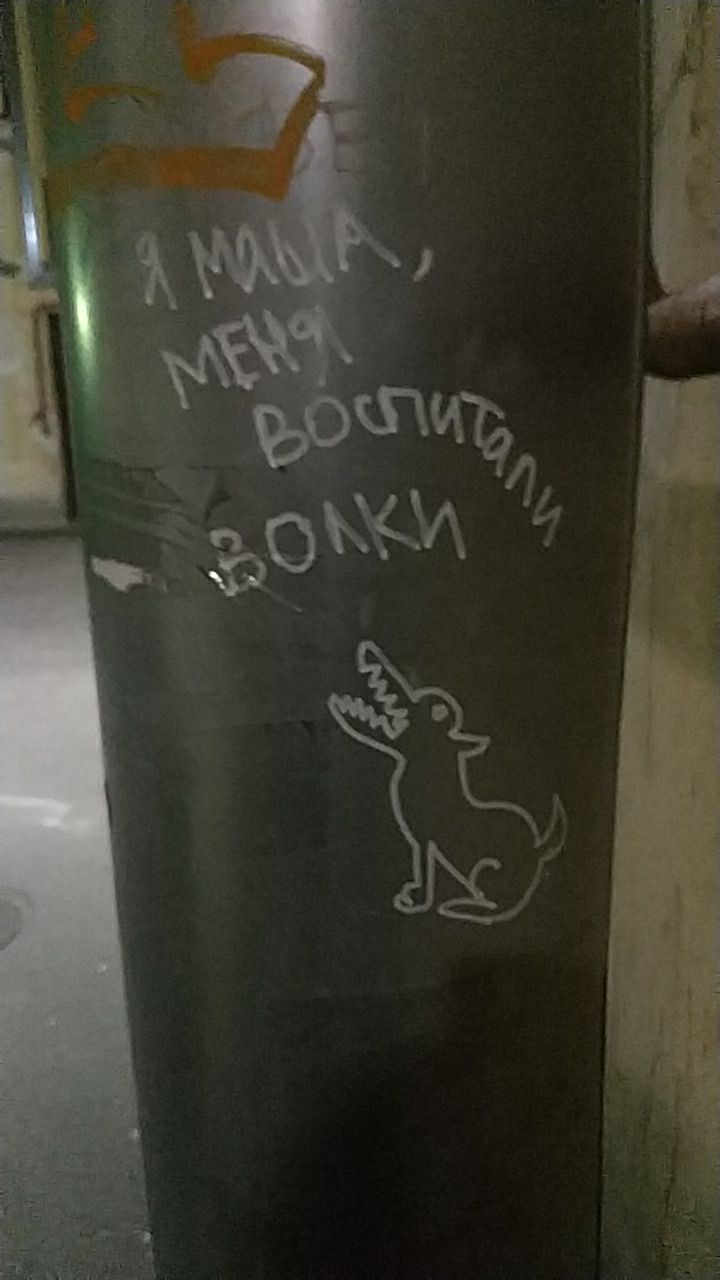 Я МАША,
МЕНЯ
ВОСПИТАЛИ
ВОЛКИ